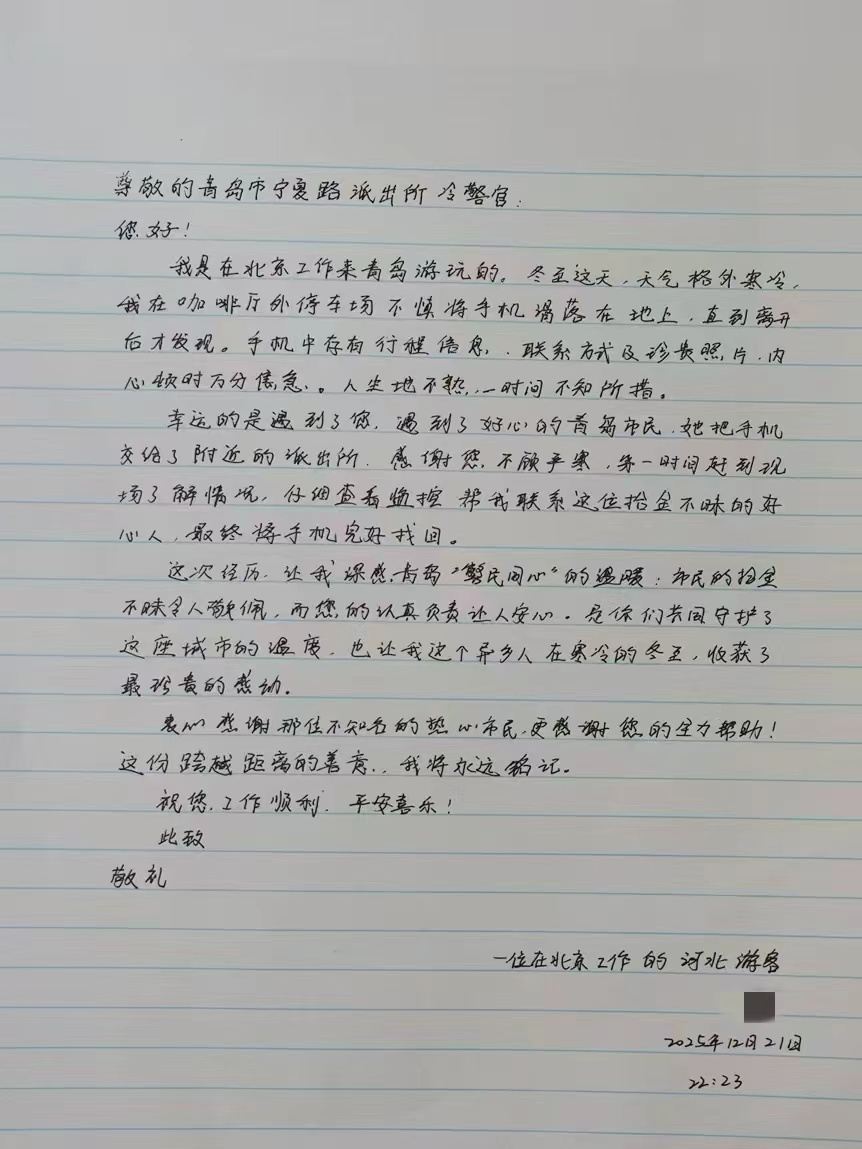 尊敬的青岛市宁夏路派出所冷警官：
您好！
我是在北京工作来青岛游玩的。冬至这天，天气格外寒冷，
我在咖啡厅外停车场不慎将手机滑落在地上，直到离开
后才发现。手机中存有行程信息、联系方式及珍贵照片，内
心顿时万分焦急。人生地不熟，一时间不知所措。
幸运的是遇到了您，遇到了好心的青岛市民，她把手机
交给了附近的派出所。感谢您不顾严寒，第一时间赶到现
场了解情况，仔细查看监控帮我联系这位拾金不昧的好
心人，最终将手机完好找回。
这次经历，让我深感青岛“警民同心”的温暖：市民的拾金
不昧令人敬佩，而您的认真负责让人安心。是你们共同守护了
这座城市的温度，也让我这个异乡人在寒冷的冬至，收获了
最珍贵的感动。
衷心感谢那位不知名的热心市民，更感谢您的全力帮助！
这份跨越距离的善意，我将永远铭记。
祝您工作顺利，平安喜乐！
此致
敬礼
一位在北京工作的河北游客
2025年12月21日
22:23